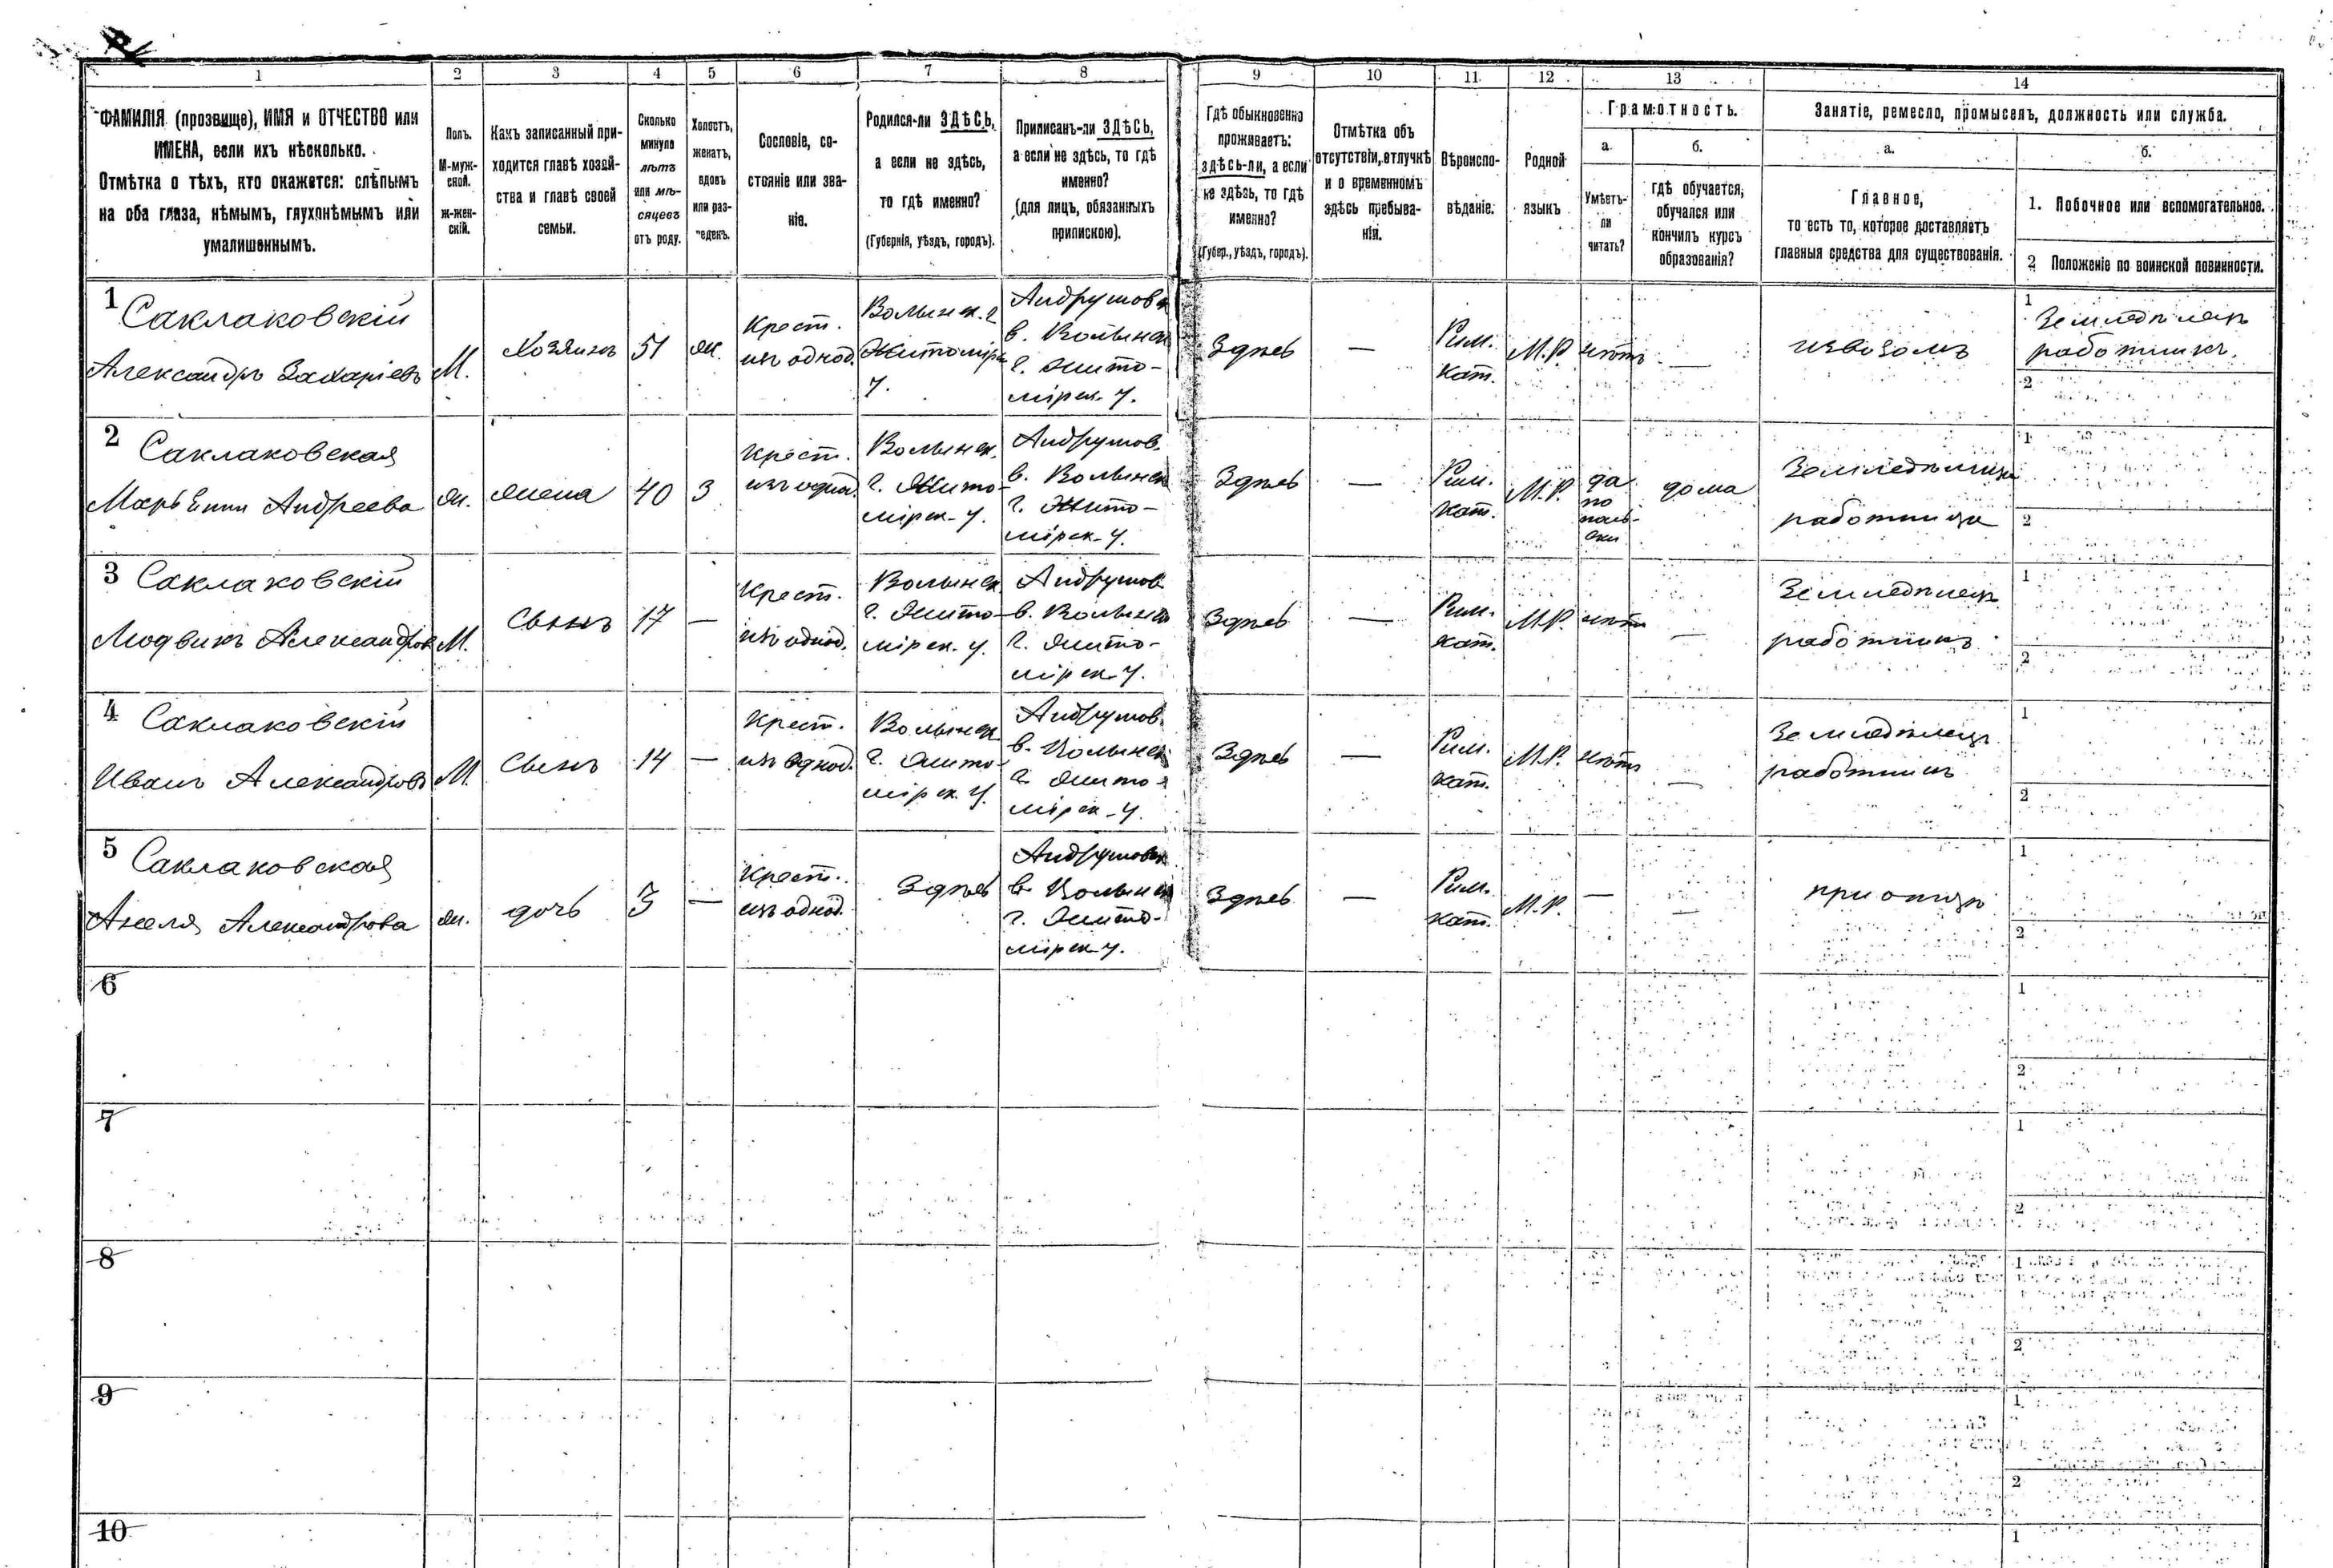 1 2 3 4 5 6 7 8 9 10 11 12 13 14
ФАМИЛІЯ (прозвище), ИМЯ и ОТЧЕСТВО или
ИМЕНА, если ихъ нѣсколько.
Отмѣтка о тѣхъ, кто окажется: слѣпымъ
на оба глаза, нѣмымъ, глухонѣмымъ или
умалишеннымъ.
Полъ.
М-муж-
ской.
Ж-жен-
скій.
Какъ записанный при-
ходится главѣ хозяй-
ства и главѣ своей
семьи.
Сколько
минуло
лѣтъ
или мѣ-
сяцевъ
отъ роду.
Холостъ,
женатъ,
вдовъ
или раз-
веденъ.
Сословіе, со-
стояніе или зва-
ніе.
Родился-ли ЗДѢСЬ,
а если не здѣсь,
то гдѣ именно?
(Губернія, уѣздъ, городъ).
Приписанъ-ли ЗДѢСЬ,
а если не здѣсь, то гдѣ
именно?
(для лицъ, обязанныхъ
припискою).
Гдѣ обыкновенно
проживаетъ:
здѣсь-ли, а если
не здѣсь, то гдѣ
именно?
(Губер., уѣздъ, городъ).
Отмѣтка объ
отсутствіи, отлучкѣ
и о временномъ
здѣсь пребыва-
ніи.
Вѣроиспо-
вѣданіе.
Родной
языкъ.
Грамотность.
а.
Умѣетъ-
ли
читать?
б.
гдѣ обучается,
обучался или
кончилъ курсъ
образованія?
Занятіе, ремесло, промыселъ, должность или служба.
а.
Главное,
то есть то, которое доставляетъ
главныя средства для существованія.
б.
1. Побочное или вспомогательное.
2 Положеніе по воинской повинности.
1 Саклаковскій
Александръ Захаріевъ
М.
Хозяинъ
51
ж.
Крест.
изъ однод.
Волынск. г
Житомірск
у.
Андрушовк
в. Волынск
г. Жито-
мірск. у.
Здѣсь
—
Рим.
Кат.
М.Р.
нѣтъ
—
извозомъ
1
Земледѣлецъ
работникъ.
2
2 Саклаковская
Андреева
ж.
жена
40
З
Крест.
изъ однод.
Волынск.
г. Жито-
мірск. у.
Андрушов.
в. Волынск
г. Жито-
мірск. у.
Здѣсь
—
Рим.
Кат.
М.Р.
да
по
поль-
ски
дома
Земледѣлица
работница
1
2
3 Саклаковскій
Людвикъ Александров
М.
Сынъ
17
—
Крест.
изъ однод.
Волынск
г. Жито-
мірск. у.
Андрушов
в. Волынск
г. Жито-
мірск. у.
Здѣсь
—
Рим.
Кат.
М.Р.
нѣтъ
—
Земледѣлецъ
работникъ
1
2
4 Саклаковскій
Иванъ Александровъ
М.
Сынъ
14
—
Крест.
изъ однод.
Волынск
г. Жито-
мірск. у.
Андрушов.
в. Волынск
г. Жито-
мірск. у.
Здѣсь
—
Рим.
Кат.
М.Р.
нѣтъ
—
Земледѣлецъ
работникъ
1
2
5 Саклаковская
Анеля Александрова
ж.
дочь
3
—
Крест.
изъ однод.
Здѣсь
Андрушовк
в. Волынск
г. Жито-
мірск. у.
Здѣсь
—
Рим.
Кат.
М.Р.
—
—
при отцѣ
1
2
6
1
2
7
1
2
8
1
2
9
1
2
10
1